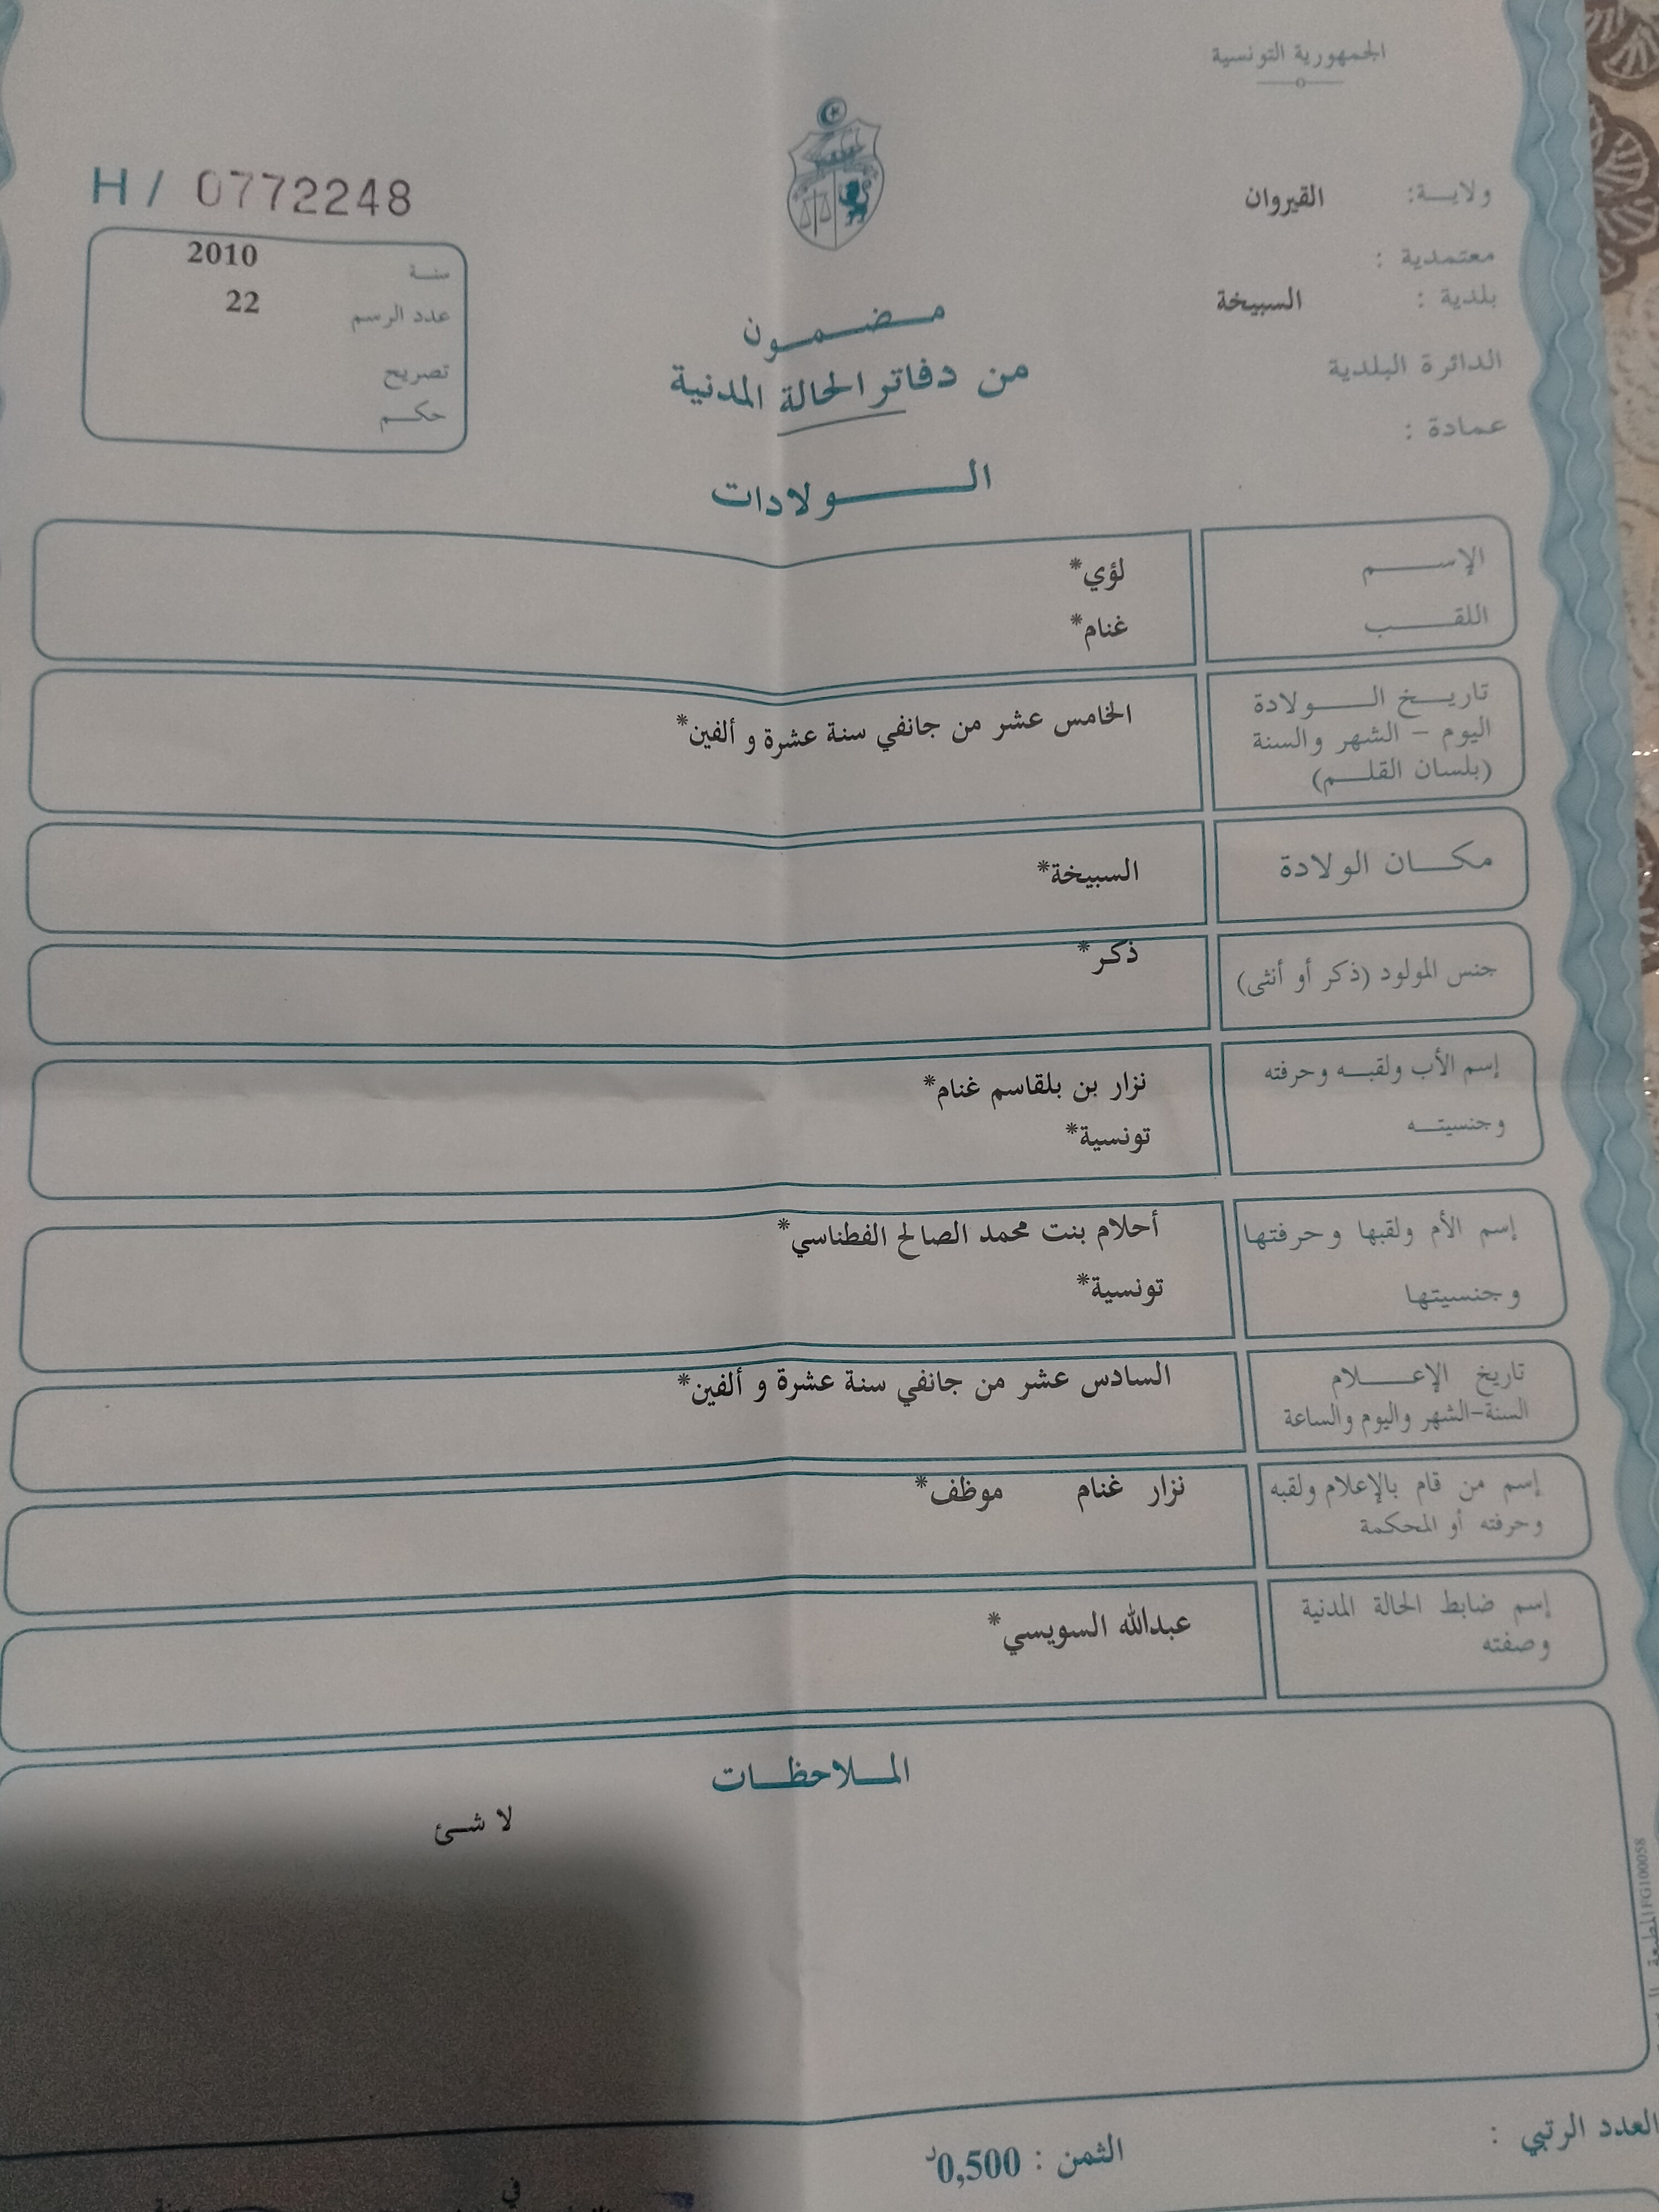 الجمهورية التونسية
ولاية: القيروان
معتمدية :
بلدية : السبيخة
الدائرة البلدية
عمادة :
H / 0772248
سنة 2010
عدد الرسم 22
تصريح
حكم
مضمون
من دفاتر الحالة المدنية
الولادات
الإسم لؤي*
اللقب غنام*
تاريخ الولادة
اليوم - الشهر والسنة
(بلسان القلم)
الخامس عشر من جانفي سنة عشرة و ألفين*
مكان الولادة السبيخة*
جنس المولود (ذكر أو أنثى) ذكر*
إسم الأب ولقبه وحرفته نزار بن بلقاسم غنام*
وجنسيته تونسية*
إسم الأم ولقبها وحرفتها أحلام بنت محمد الصالح الفطناسي*
وجنسيتها تونسية*
تاريخ الإعلام السادس عشر من جانفي سنة عشرة و ألفين*
السنة-الشهر واليوم والساعة
إسم من قام بالإعلام ولقبه نزار غنام موظف*
وحرفته أو المحكمة
إسم ضابط الحالة المدنية عبدالله السويسي*
وصفته
الملاحظات
لا شئ
FG100058 المطبعة
العدد الرتبي :
الثمن : 0,500د
في